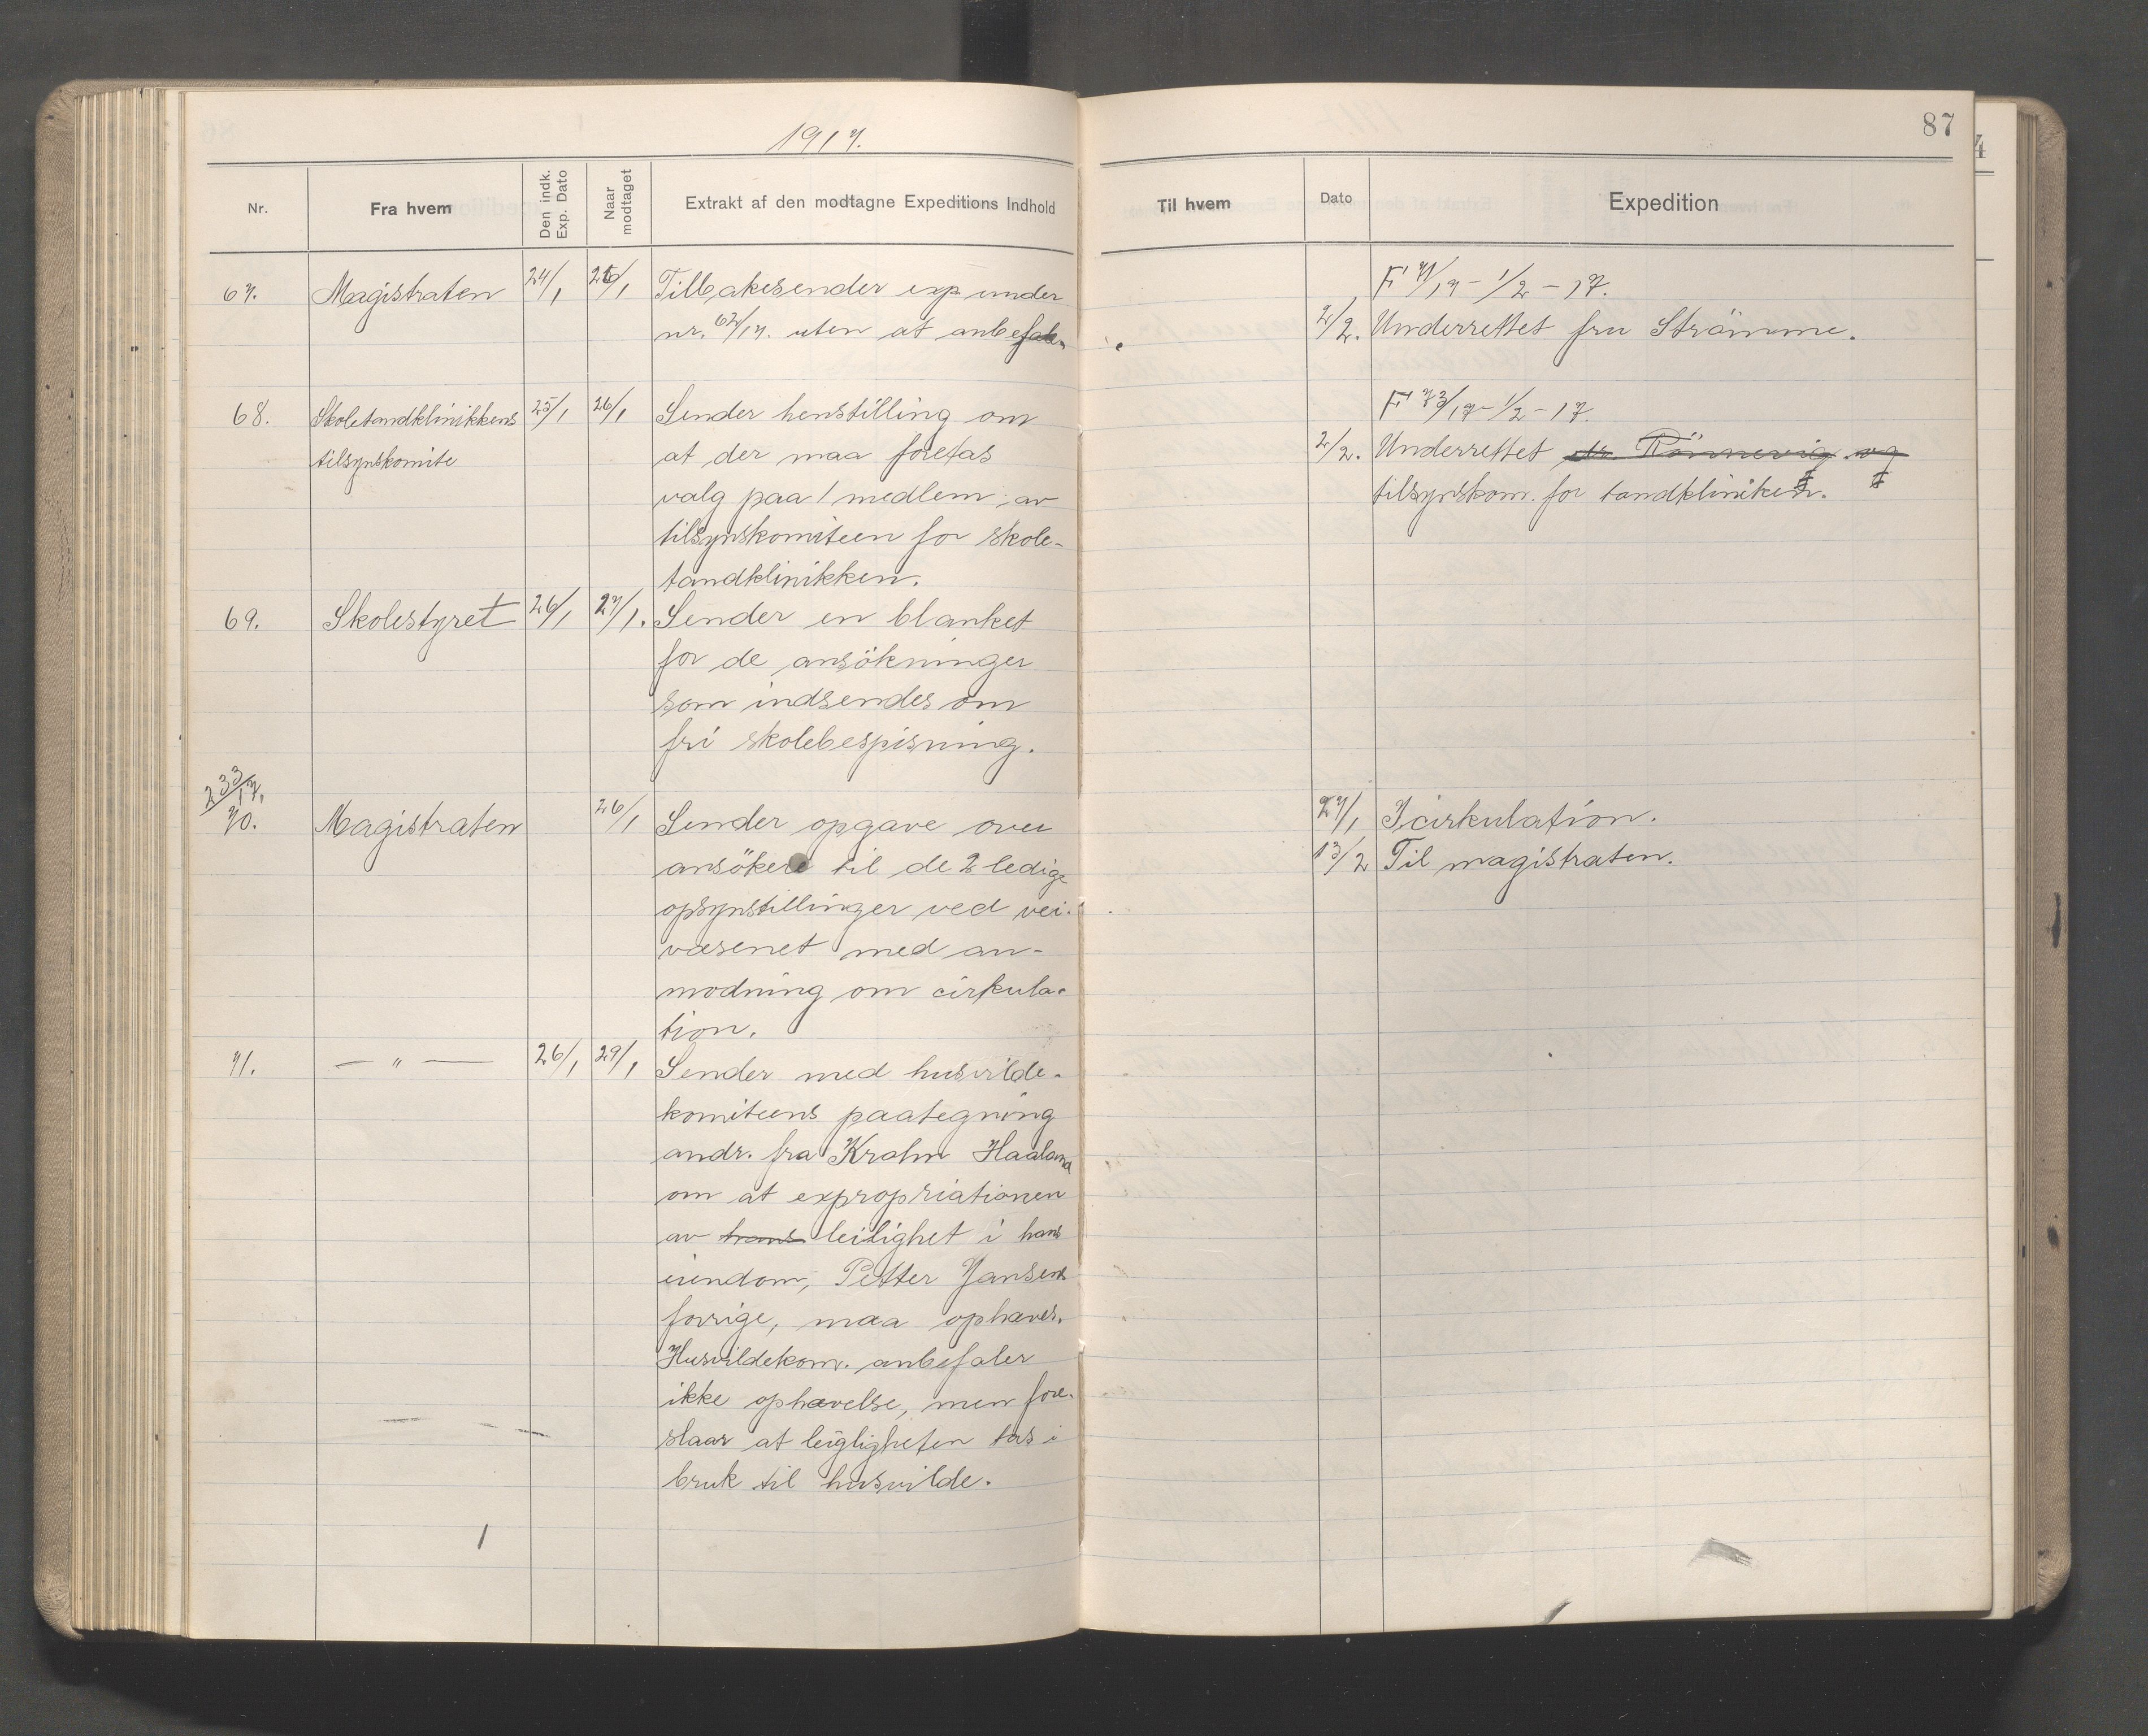 1917.
87
Nr.
Fra hvem
Den indk. Exp. Dato
Naar modtaget
Extrakt af den modtagne Expeditions Indhold
Til hvem
Dato
Expedition
67. Magistraten 24/1 26/1 Tilbakesender exp under
nr. 62/17. uten at anbefale.
F 71/17 - 1/2 - 17.
2/2. Underrettet fru Strömme.
68. Skoletandklinikkens 25/1 26/1 Sender henstilling om
tilsynskomite
at der maa foretas
valg paa 1 medlem av
tilsynskomiteen for skole-
tandklinikken.
F 73/17 - 1/2 - 17.
2/2. Underrettet dr. Rönnevig og
tilsynskom. for tandkliniken.
69. Skolestyret 26/1 27/1. Sender en blanket
for de ansökninger
som indsendes om
fri skolebespisning.
233/17.
70. Magistraten 26/1 Sender opgave over
ansökere til de 2 ledige
opsynstillinger ved vei-
væsenet med an-
modning om cirkula-
tion.
27/1 I cirkulation.
13/2 Til magistraten.
71. — " — 26/1 29/1 Sender med husvilde-
komiteens paategning
andr. fra Krohn Haaland
om at expropriationen
av hans leilighet i hans
eiendom, Petter Jansens
forrige, maa ophæves.
Husvildekom. anbefaler
ikke ophævelse, men fore-
slaar at leigligheten tas i
bruk til husvilde.